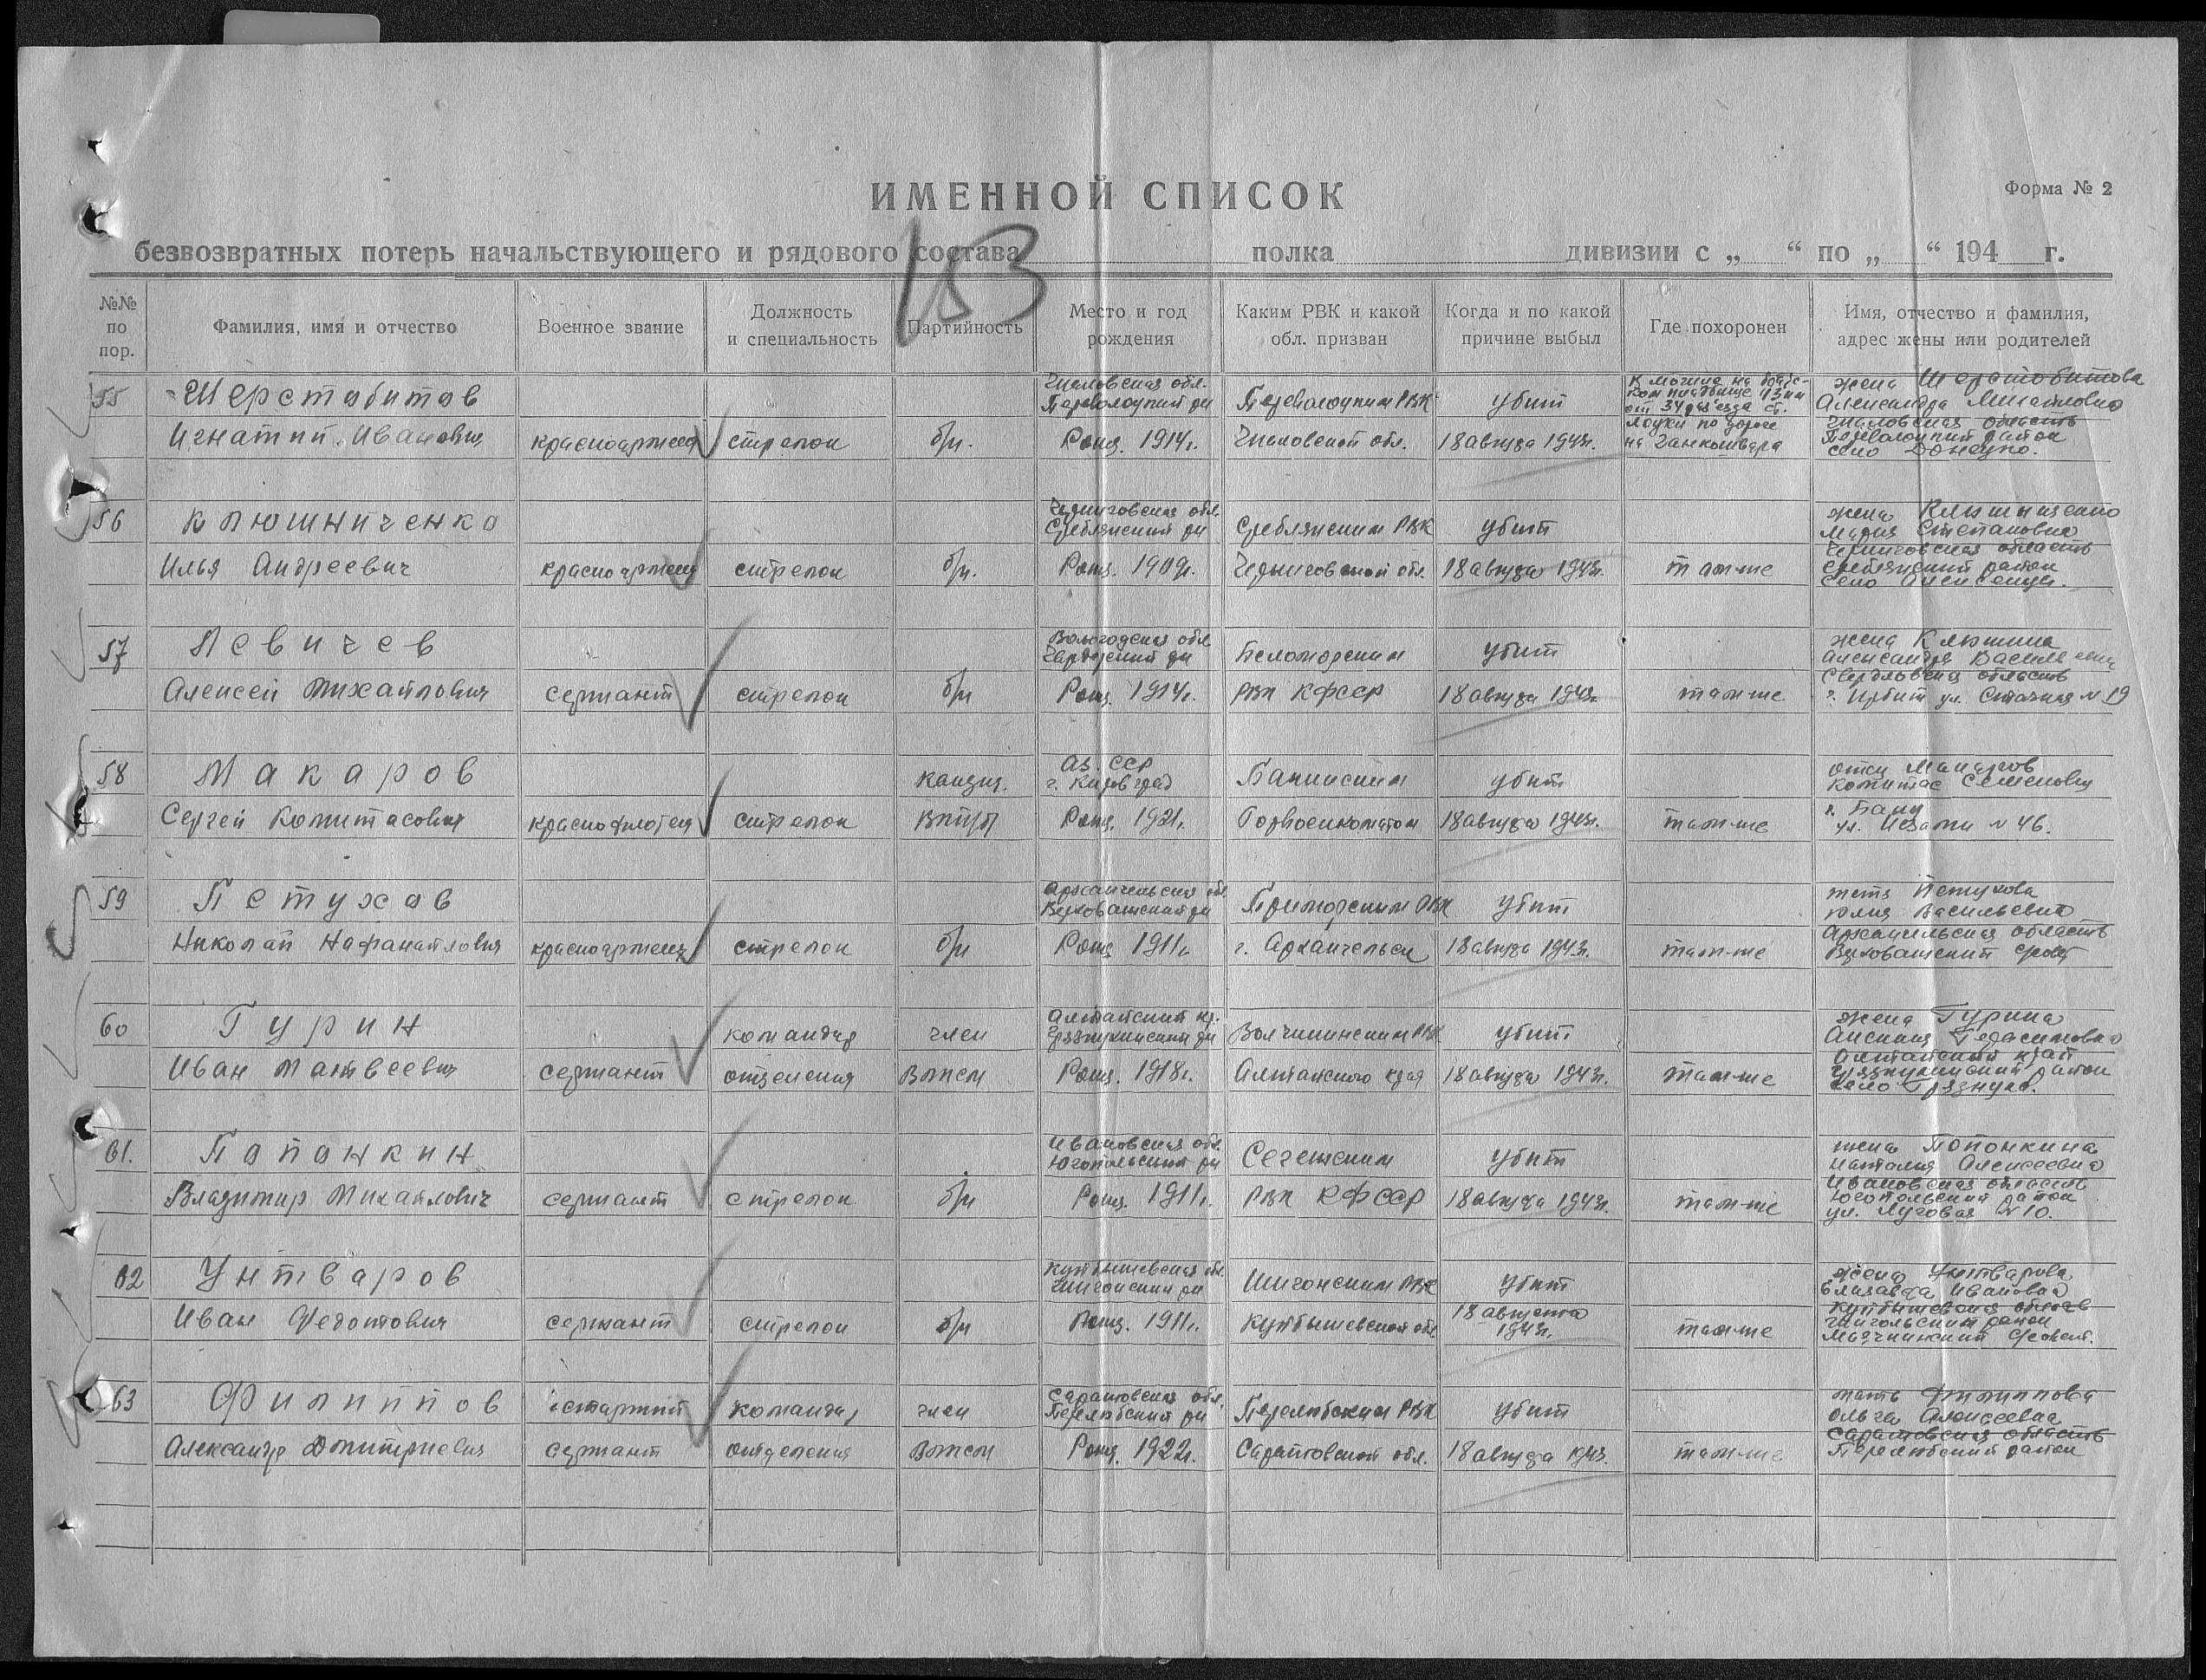 ИМЕННОЙ СПИСОК
Форма № 2
безвозвратных потерь начальствующего и рядового состава полка дивизии с „ “ по „ “ 194 г.
153
№№ по пор.
Фамилия, имя и отчество
Военное звание
Должность и специальность
Партийность
Место и год рождения
Каким РВК и какой обл. призван
Когда и по какой причине выбыл
Где похоронен
Имя, отчество и фамилия, адрес жены или родителей
55 Шерстобитов Чкаловская обл. Переволоцкий рн Переволоцким РВК убит жена Шерстобитова
Игнатий Иванович красноармеец стрелок б/п. Рожд. 1914г. Чкаловской обл. 18 августа 1943г. Александра
на дороге
Чкаловская область
Переволоцкий район
село
56 Клюшниченко Черниговская обл. Сребнянский рн Сребнянским РВК убит жена
Илья Андреевич красноармеец стрелок б/п. Рожд. 1909г. Черниговской обл. 18 августа 1943г. там-же Мария Степановна
Черниговская область
Сребнянский район
село
57 Левичев Вологодская обл. рн Беломорским убит жена Клюшина
Алексей Михайлович сержант стрелок б/п Рожд. 1914г. РВК КФССР 18 августа 1943г. там-же Александра
Свердловская область
г. Ирбит ул. N 19
58 Макаров кандид. Аз. ССР г. Бакинским убит отец Макаров
Сергей Комитасович краснофлотец стрелок ВКП/б Рожд. 1921г. Горвоенкоматом 18 августа 1943г. там-же Комитас Семенович
г. Баку
ул. Низами N 46.
59 Петухов Архангельская обл. рн Приморским РВК убит Петухова
Николай красноармеец стрелок б/п Рожд 1911г. г. Архангельск 18 августа 1943г. там-же Юлия Васильевна
Архангельская область
60 Гурин командир член Алтайский кр. Грязнухинский рн Волчихинским РВК убит жена Гурина
Иван Матвеевич сержант отделения ВЛКСМ Рожд. 1918г. Алтайского края 18 августа 1943г. там-же Аксиния Герасимовна
Алтайский край
Грязнухинский район
село Грязнуха.
61. Папанкин Ивановская обл. рн Сегежским убит жена Попонкина
Владимир Михайлович сержант стрелок б/п Рожд. 1911г. РВК КФССР 18 августа 1943г. там-же Наталия Алексеевна
Ивановская область
район
ул. Луговая N 10.
62 Унтваров Куйбышевская обл. Шигонский рн Шигонским РВК убит жена Унтварова
Иван Федотович сержант стрелок б/п Рожд. 1911г. Куйбышевской обл. 18 августа 1943г. там-же Елизавета Ивановна
Куйбышевская область
район
63 Филиппов старший командир член Саратовская обл. Перелюбский рн Перелюбским РВК убит мать Филиппова
Александр Дмитриевич сержант отделения ВЛКСМ Рожд. 1922г. Саратовской обл. 18 августа 1943. там-же Ольга Алексеевна
Саратовская область
Перелюбский район